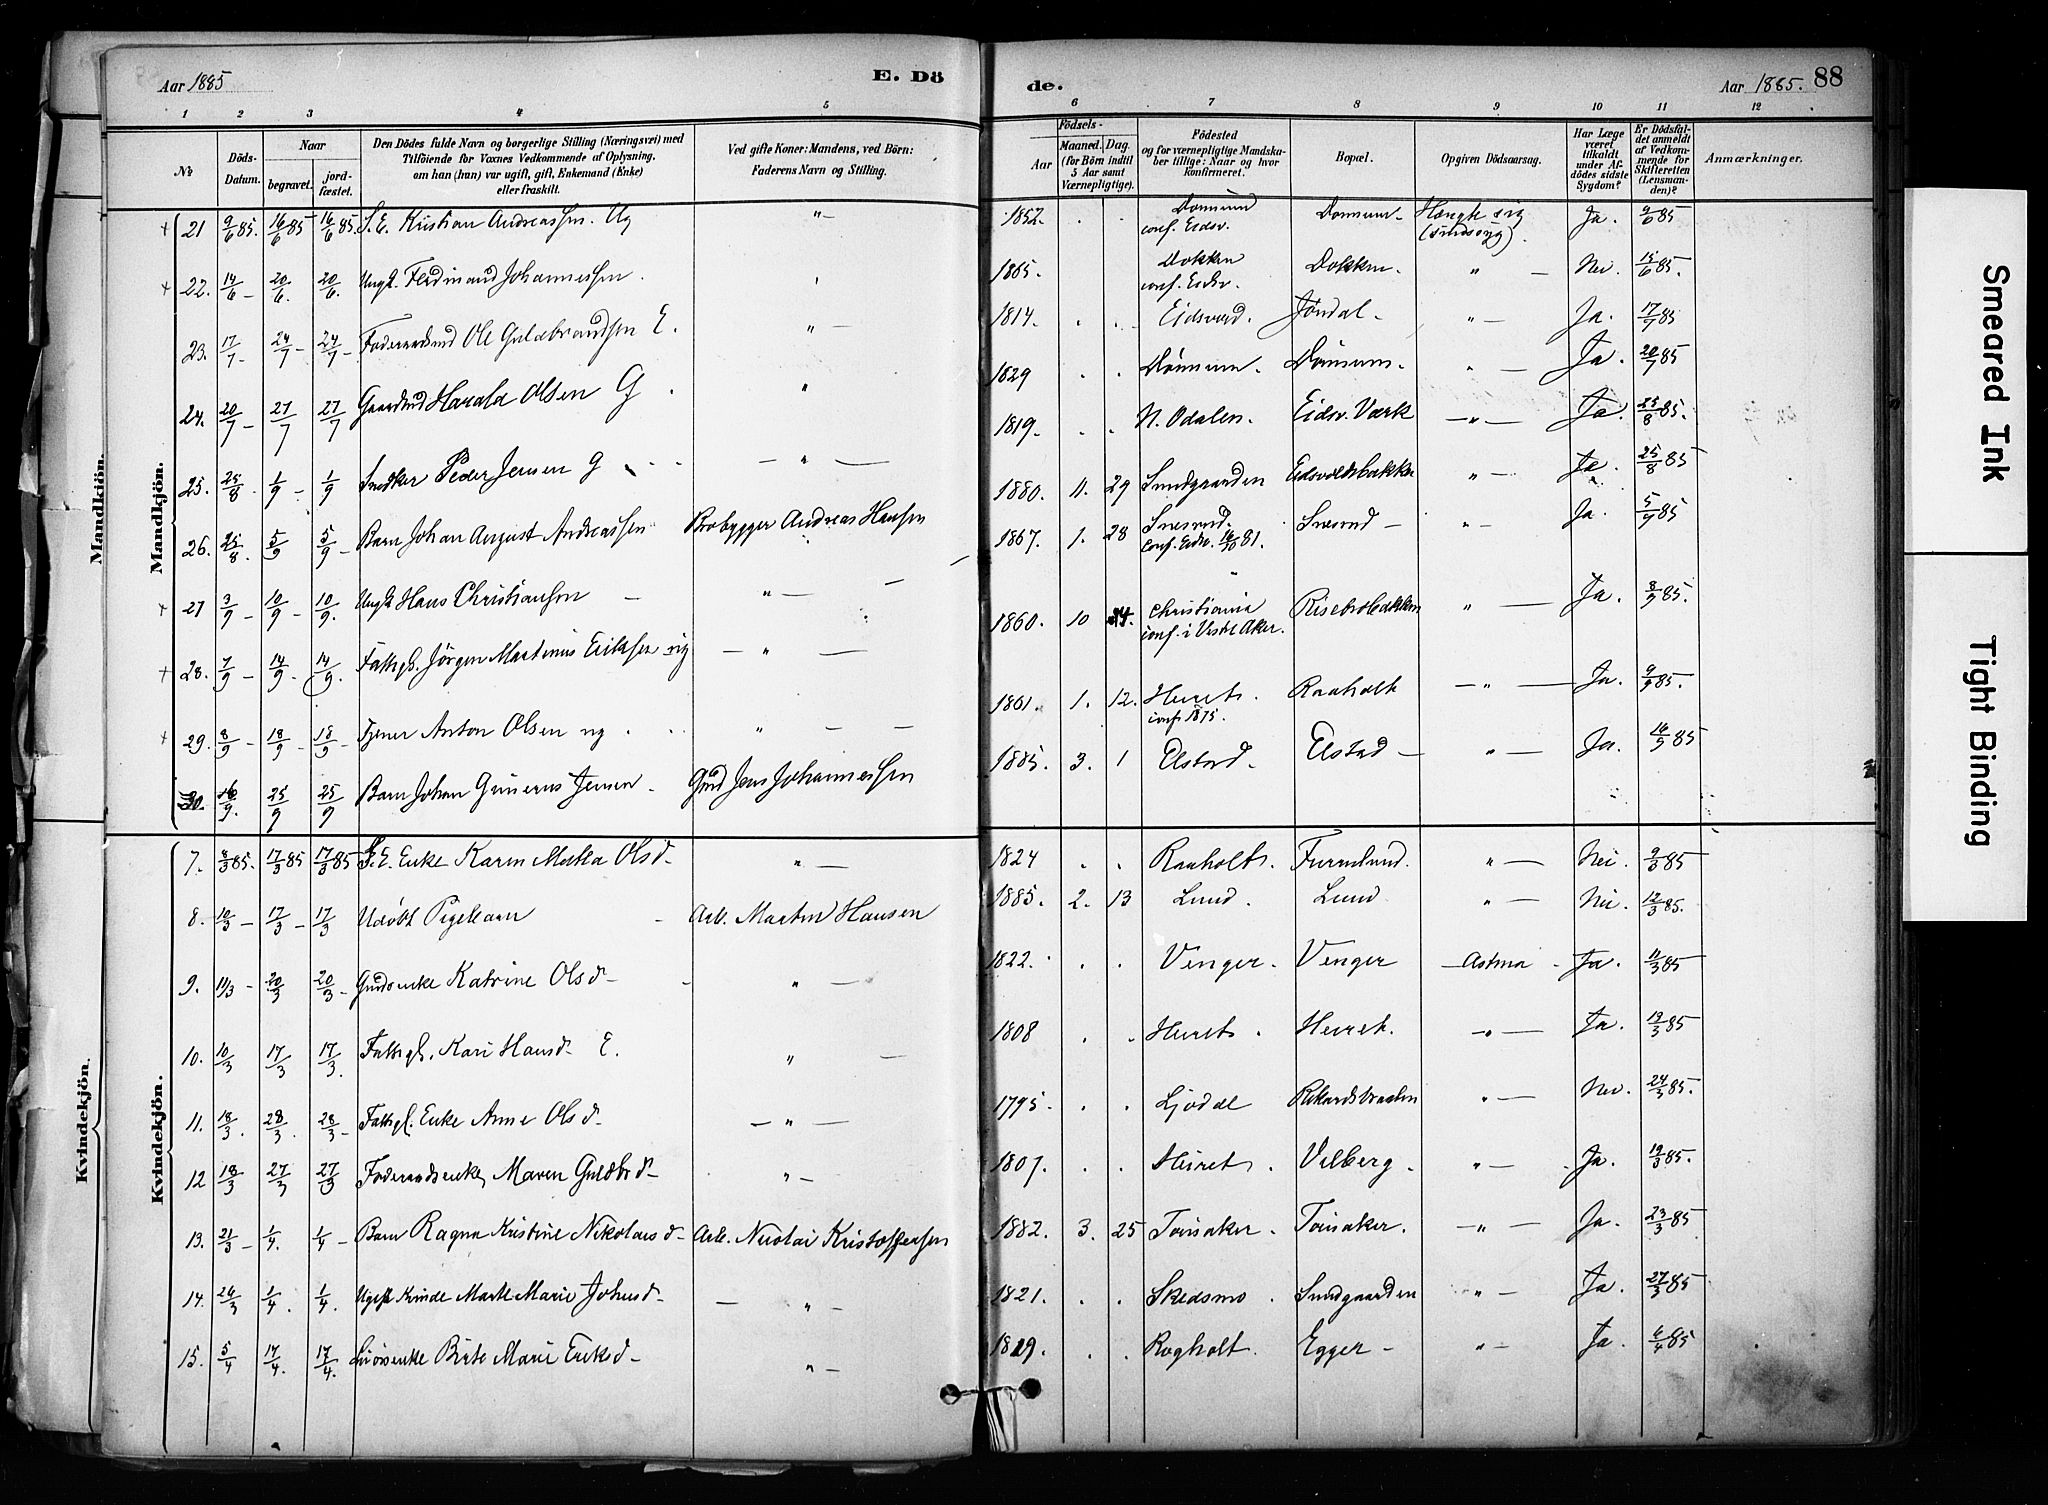 Aar 1885 E. Dö
de. Aar 1885. 88
1 2 3 4 5
6 7 8 9 10 11 12
No Döds-Datum. Naar begravet. jord-fæstet.
Den Dödes fulde Navn og borgerlige Stilling (Næringsvei) med
Tilföiende for Voxnes Vedkommende af Oplysning,
om han (hun) var ugift, gift, Enkemand (Enke)
eller fraskilt.
Ved gifte Koner: Mandens, ved Börn:
Faderens Navn og Stilling.
Födsels-
Aar Maaned. Dag.
(for Börn indtil
5 Aar samt
Værnepligtige).
Födested
og for værnepligtige Mandska-
ber tillige: Naar og hvor
konfirmeret.
Bopæl.
Opgiven Dödsaarsag.
Har Læge
været
tilkaldt
under Af-
dödes sidste
Sygdom?
Er Dödsfal-
det anmeldt
af Vedkom-
mende for
Skifteretten
(Lensman-
den)?
Anmærkninger.
Mandkjön.
Mandkjön.
+ 21 9/6 85. 16/6 85 16/6 85. S. E. Kristian Andreassen. Ug „ — 1852. . . Dønnum conf. Eidsv. Dønnum - Hængte sig (sindssyg). Ja. 9/6 85
+ 22. 14/6 - 20/6. 20/6. Ungk. Ferdinand Johannessen. 1865. Dokken conf. Eidsv. Dokken. „ — Nei. 15/6 85.
23. 17/7 24/7 - 24/7 - Føderaadsmd Ole Guldbrandsen E. „ — 1814. . . Eidsvold. Jøndal - „ — Ja. 17/7 85
24. 20/7 - 27/7 27/7 Gaardmd Harald Olsen G. „ 1829 . . Dønnum. Dønnum. „ — Ja. 20/7 85
25. 25/8 - 1/9 - 1/9 Snedker Peder Jensen G — „ — 1819. . . N. Odalen. Eidsv. Værk — „ — Ja. 25/8 85.
26. 25/8. 5/9 5/9 - Barn Johan August Andreassen Brobygger Andreas Hansen 1880. 11. 29 Sundgaarden Eidsvoldsbakken „ — Ja. 25/8 85
+ 27 3/9 - 10/9 - 10/9. Ungk Hans Christiansen — „ — 1867. 1. 28 conf. Eidsv. 16/10 81. „ - Ja. 5/9 85
+ 28. 7/9 - 14/9 - 14/9. Fattigl. Jörgen Martinus Eriksen ug — „ — 1860. 10 Christiania conf. i Vestre Aker. Risebrobakken „ — Ja. 8/9 85.
+ 29. 8/9 - 18/9 - 18/9 - Tjener Anton Olsen ug. „ — 1861. 1. 12. Hurets conf 1875. Raaholt — „ — Ja. 9/9 85.
30. 16/9. 25/9 25/9 Barn Johan Gunerus Jensen - Gmd Jens Johannessen 1885. 3. 1 Elstad. Elstad — „ — Ja. 16/9 85
Kvindekjön.
Kvindekjön.
7. 8/3 85. 17/3 85 17/3 85 S. E. Enke Karen Mathea Olsd - „ — 1824 . . Raaholt. „ — Nei. 9/3 85
8. 10/3 - 17/3 - 17/3 Udøbt Pigebarn - Arb. Martin Hansen 1885. 2. 13 Lund. Lund „ — Nei. 12/3 85.
9. 11/3 - 20/3 20/3 - Gmdsenke Katrine Olsd - „ — 1822. . . Venger. Venger — Astma - Ja. 11/3 85
10. 10/3 17/3 17/3. Fattigl. Kari Hansd - E. „ — 1808 . . Hurets. Huret. „ — Ja. 13/3 85
11. 18/3. 28/3. 28/3 - Fattigl. Enke Anne Olsd - — „ — 1795. . . Ljødde „ — Nei. 24/3 85.
12 18/3 27/3 27/3 Føderaadsenke Maren Guldbrd - „ — 1807. . . Hurets. Vilberg. „ — Ja. 19/3 85.
13. 21/3 - 1/4. 1/4 - Barn Ragna Kristine Nikolaisd - Arb. Nicolai Kristoffersen 1882. 3. 25 Toinsaker. Toinsaker. — „ — Ja. 23/3 85
14. 26/3 1/4. 1/4. Ugift Kvinde Marte Marie Johnsd - — „ — 1821. . . Skedsmo. Sundgaarden „ — Ja. 27/3 85
15. 5/4 17/4. 17/4. Marie Eriksd - „ — 1829. . . Rogholt. Egger - „ — Ja. 6/4 85
Smeared Ink
Tight Binding